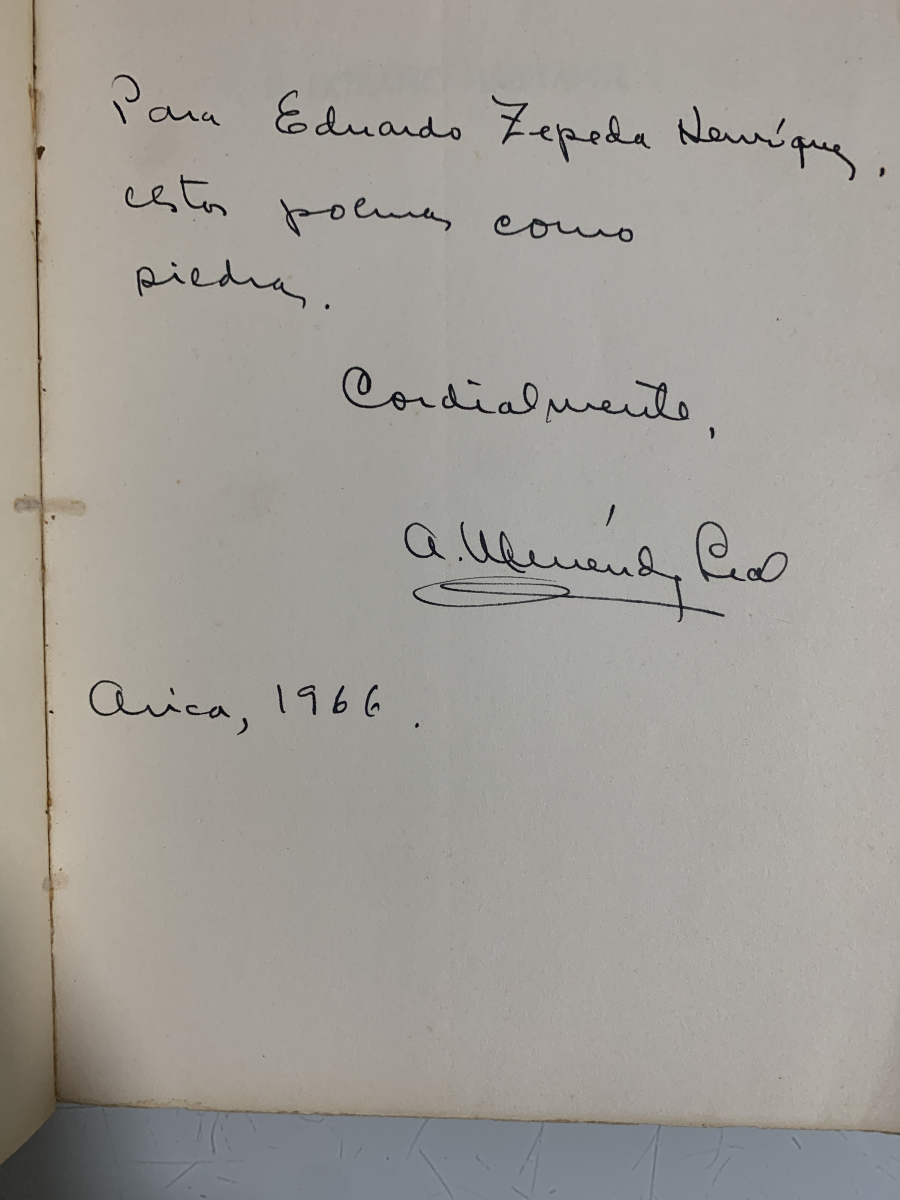 Para Eduardo Zepeda Henríquez,
estos poemas como
piedras.
Cordialmente,
A. Menéndez Leal
Arica, 1966.